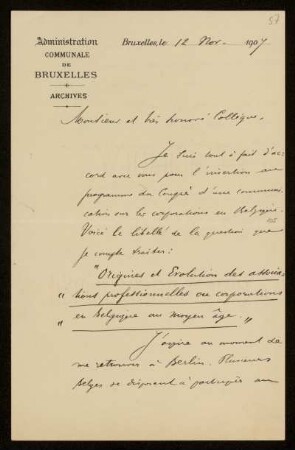 57
Administration
COMMUNALE
DE
BRUXELLES
ARCHIVES
Bruxelles, le 12 Nov. 1907
Monsieur et très honoré Collègue,
Je suis tout à fait d'ac-
cord avec vous pour l'insertion au
programme du Congrès d'une commun-
ication sur les corporations en Belgique.
Voici le libellé de la question que
je compte traiter:
"Origines et Evolution des associa-
" tions professionnelles ou corporations
" en Belgique au moyen âge. "
J'aspire au moment de
me retrouver à Berlin. Plusieurs
Belges se disposent à participer au